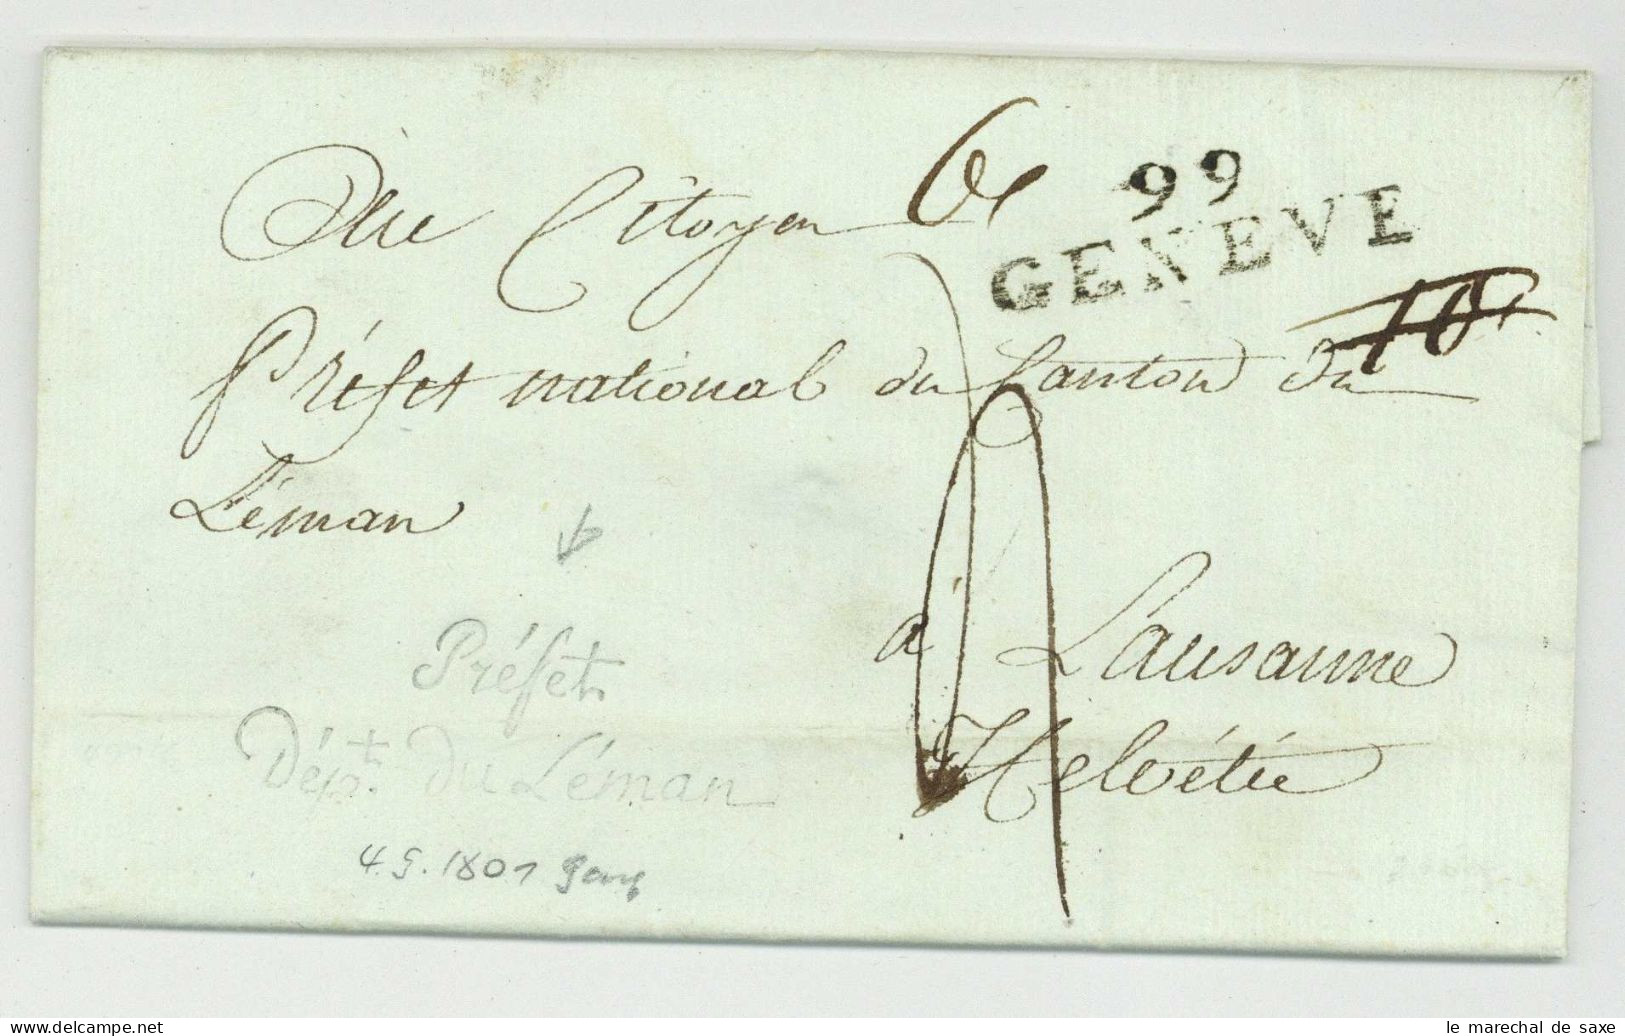 Au Citoyen
99
GENEVE
Préfet national du Canton du
Léman
à Lausanne
Helvétie
Préfet
Dépt. du Léman
4.9.1801
www.delcampe.net
le marechal de saxe